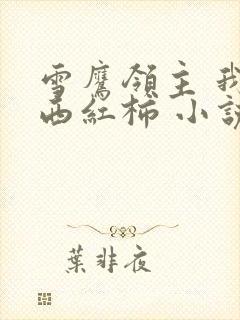 雪鹰領主 我
西紅柿 小説
葉非夜